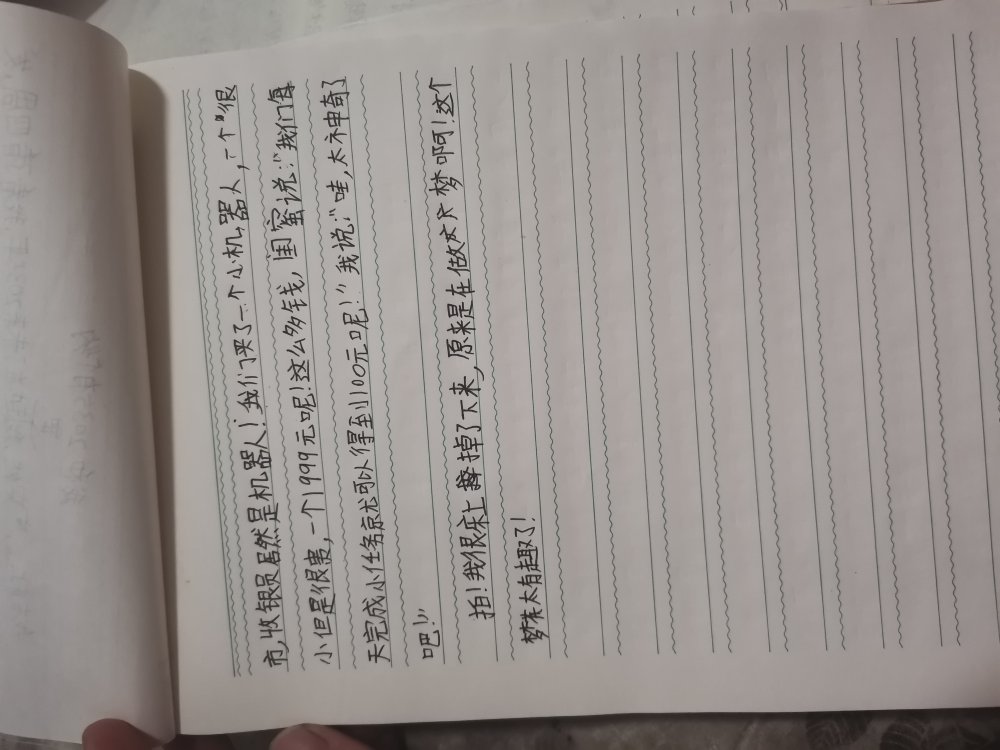 市,收银员居然是机器人!我们买了一个小机器人,一个"很
小但是很贵,一个1999元呢!这么多钱,闺蜜说:"我们每
天完成小任务就可以得到100元呢!"我说:"哇,太神奇了
吧!"
拍!我很床上掉了下来,原来是在做梦啊!这个
梦太有趣了!